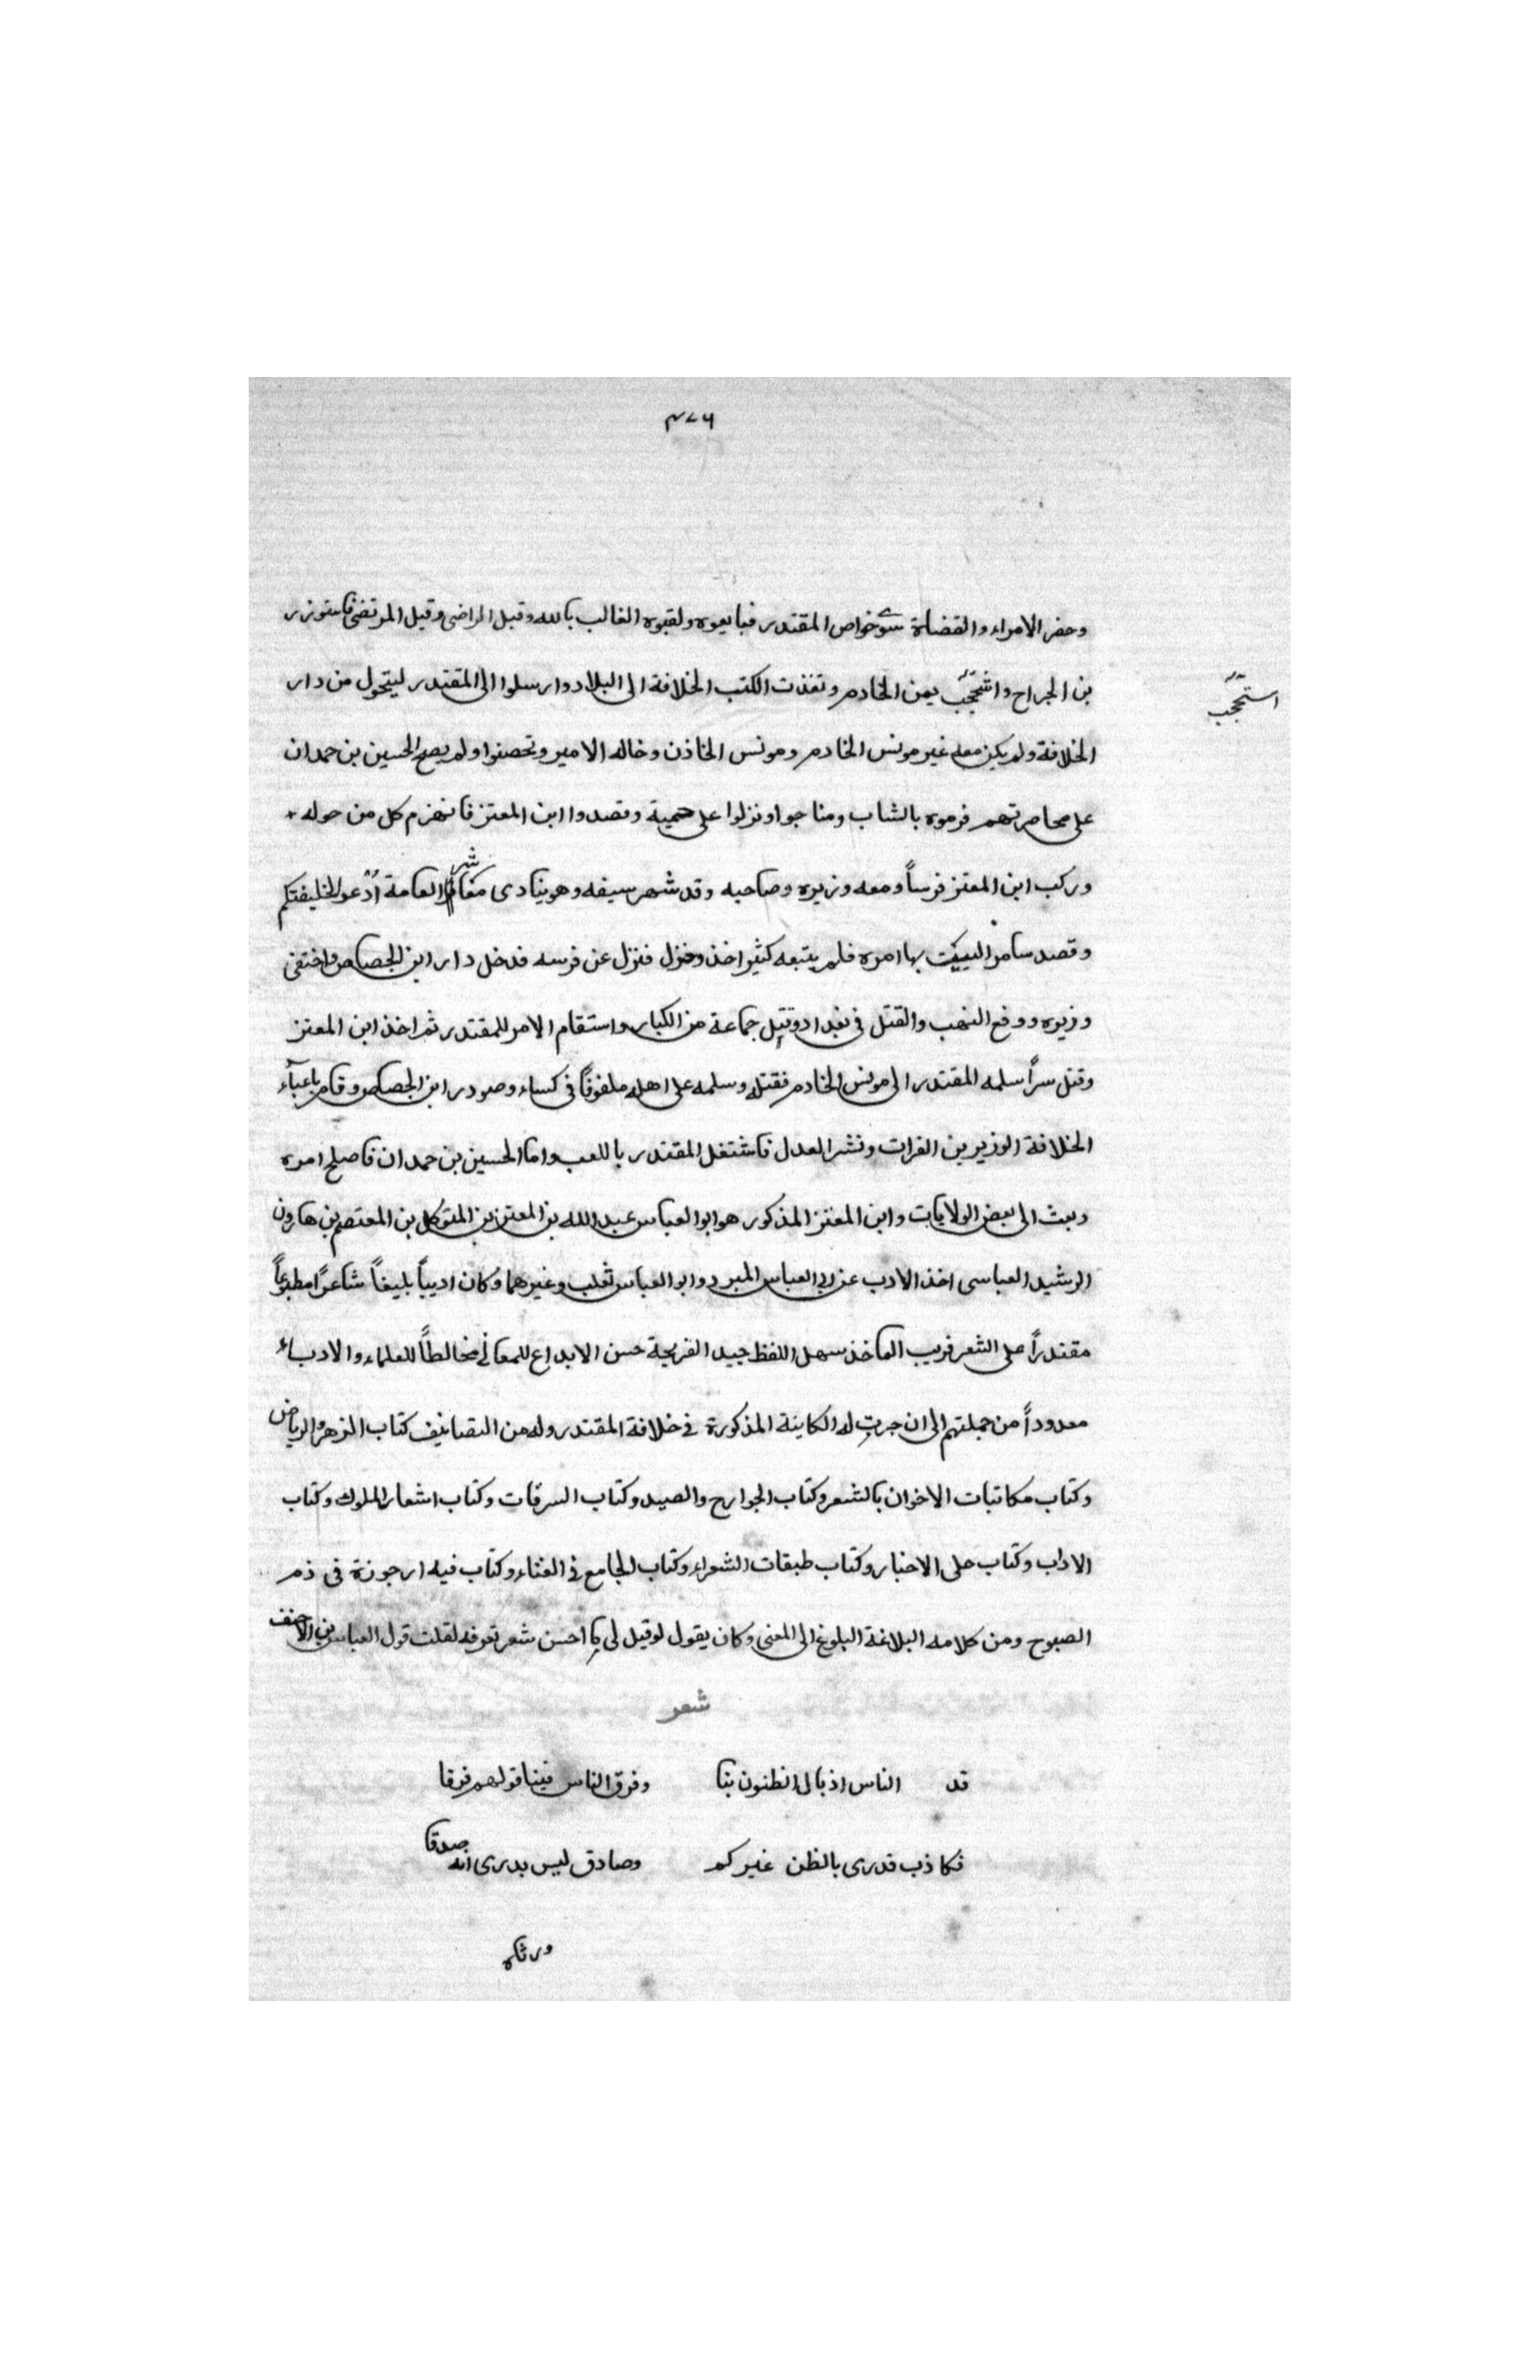 ٤٧٦
وحضر الامراء والقضاة سوى خواص المقتدر فبايعوه ولقبوه الغالب بالله وقيل الراضى وقيل المرتضى فاستوزر
بن الجراح واستحجب يمن الخادم ونفذت الكتب الخلافة الى البلاد وارسلوا الى المقتدر ليتحول من دار
استحجب
الخلافة ولم يكن معه غير مونس الخادم ومونس الخاذن وخاله الامير وتحصنوا ولم يصبح الحسين بن حمدان
على محاصرتهم فرموه بالشاب ومناجوا ونزلوا على حمية وقصدوا ابن المعتز فانهزم كل من حوله
وركب ابن المعتز فرساً ومعه وزيره وصاحبه وقد شهر سيفه وهو ينادى معاشر العامة ادعو لخليفتكم
وقصد سامر ليثبت بها امره فلم يتبعه كثير اخذ ونزل فنزل عن فرسه فدخل دار ابن الجصاص واختفى
وزيره ووقع النهب والقتل فى بغداد وقتل جماعة من الكبار واستقام الامر للمقتدر ثم اخذ ابن المعتز
وقتل سراً سلمه المقتدر الى مونس الخادم فقتله وسلمه على اهله ملفوفاً فى كساء وصودر ابن الجصاص وقام باعبآء
الخلافة الوزير بن الفرات ونشر العدل فاشتغل المقتدر باللعب واما الحسين بن حمدان فاصلح امره
وبعث الى بعض الولايات وابن المعتز المذكور هو ابو العباس عبد الله بن المعتز بن المتوكل بن المعتصم بن هارون
الرشيد العباسى اخذ الادب عن ابى العباس المبرد وابو العباس ثعلب وغيرهما وكان اديباً بليغاً شاعراً مطبوعاً
مقتدراً على الشعر قريب الماخذ سهل اللفظ جيد القريحة حسن الابداع للمعانى مخالطاً للعلماء والادباء
معدوداً من جملتهم الى ان جرت له الكاينة المذكورة فى خلافة المقتدر وله من التصانيف كتاب الزهر والرياض
وكتاب مكاتبات الاخوان بالشعر وكتاب الجوارح والصيد وكتاب السرقات وكتاب اشعار الملوك وكتاب
الاداب وكتاب حلى الاخبار وكتاب طبقات الشعراء وكتاب الجامع فى الغناء وكتاب فيه ارجوزة فى ذم
الصبوح ومن كلامه البلاغة البلوغ الى المعنى وكان يقول لو قيل لى ما احسن شعر تعرفه لقلت قول العباس بن الاحنف
شعر
قد الناس اذيال الظنون بنا وفرق الناس فينا قولهم فرقا
فكاذب قد رمى بالظن غيركم وصادق ليس يدرى انه صدقا
ورثاه